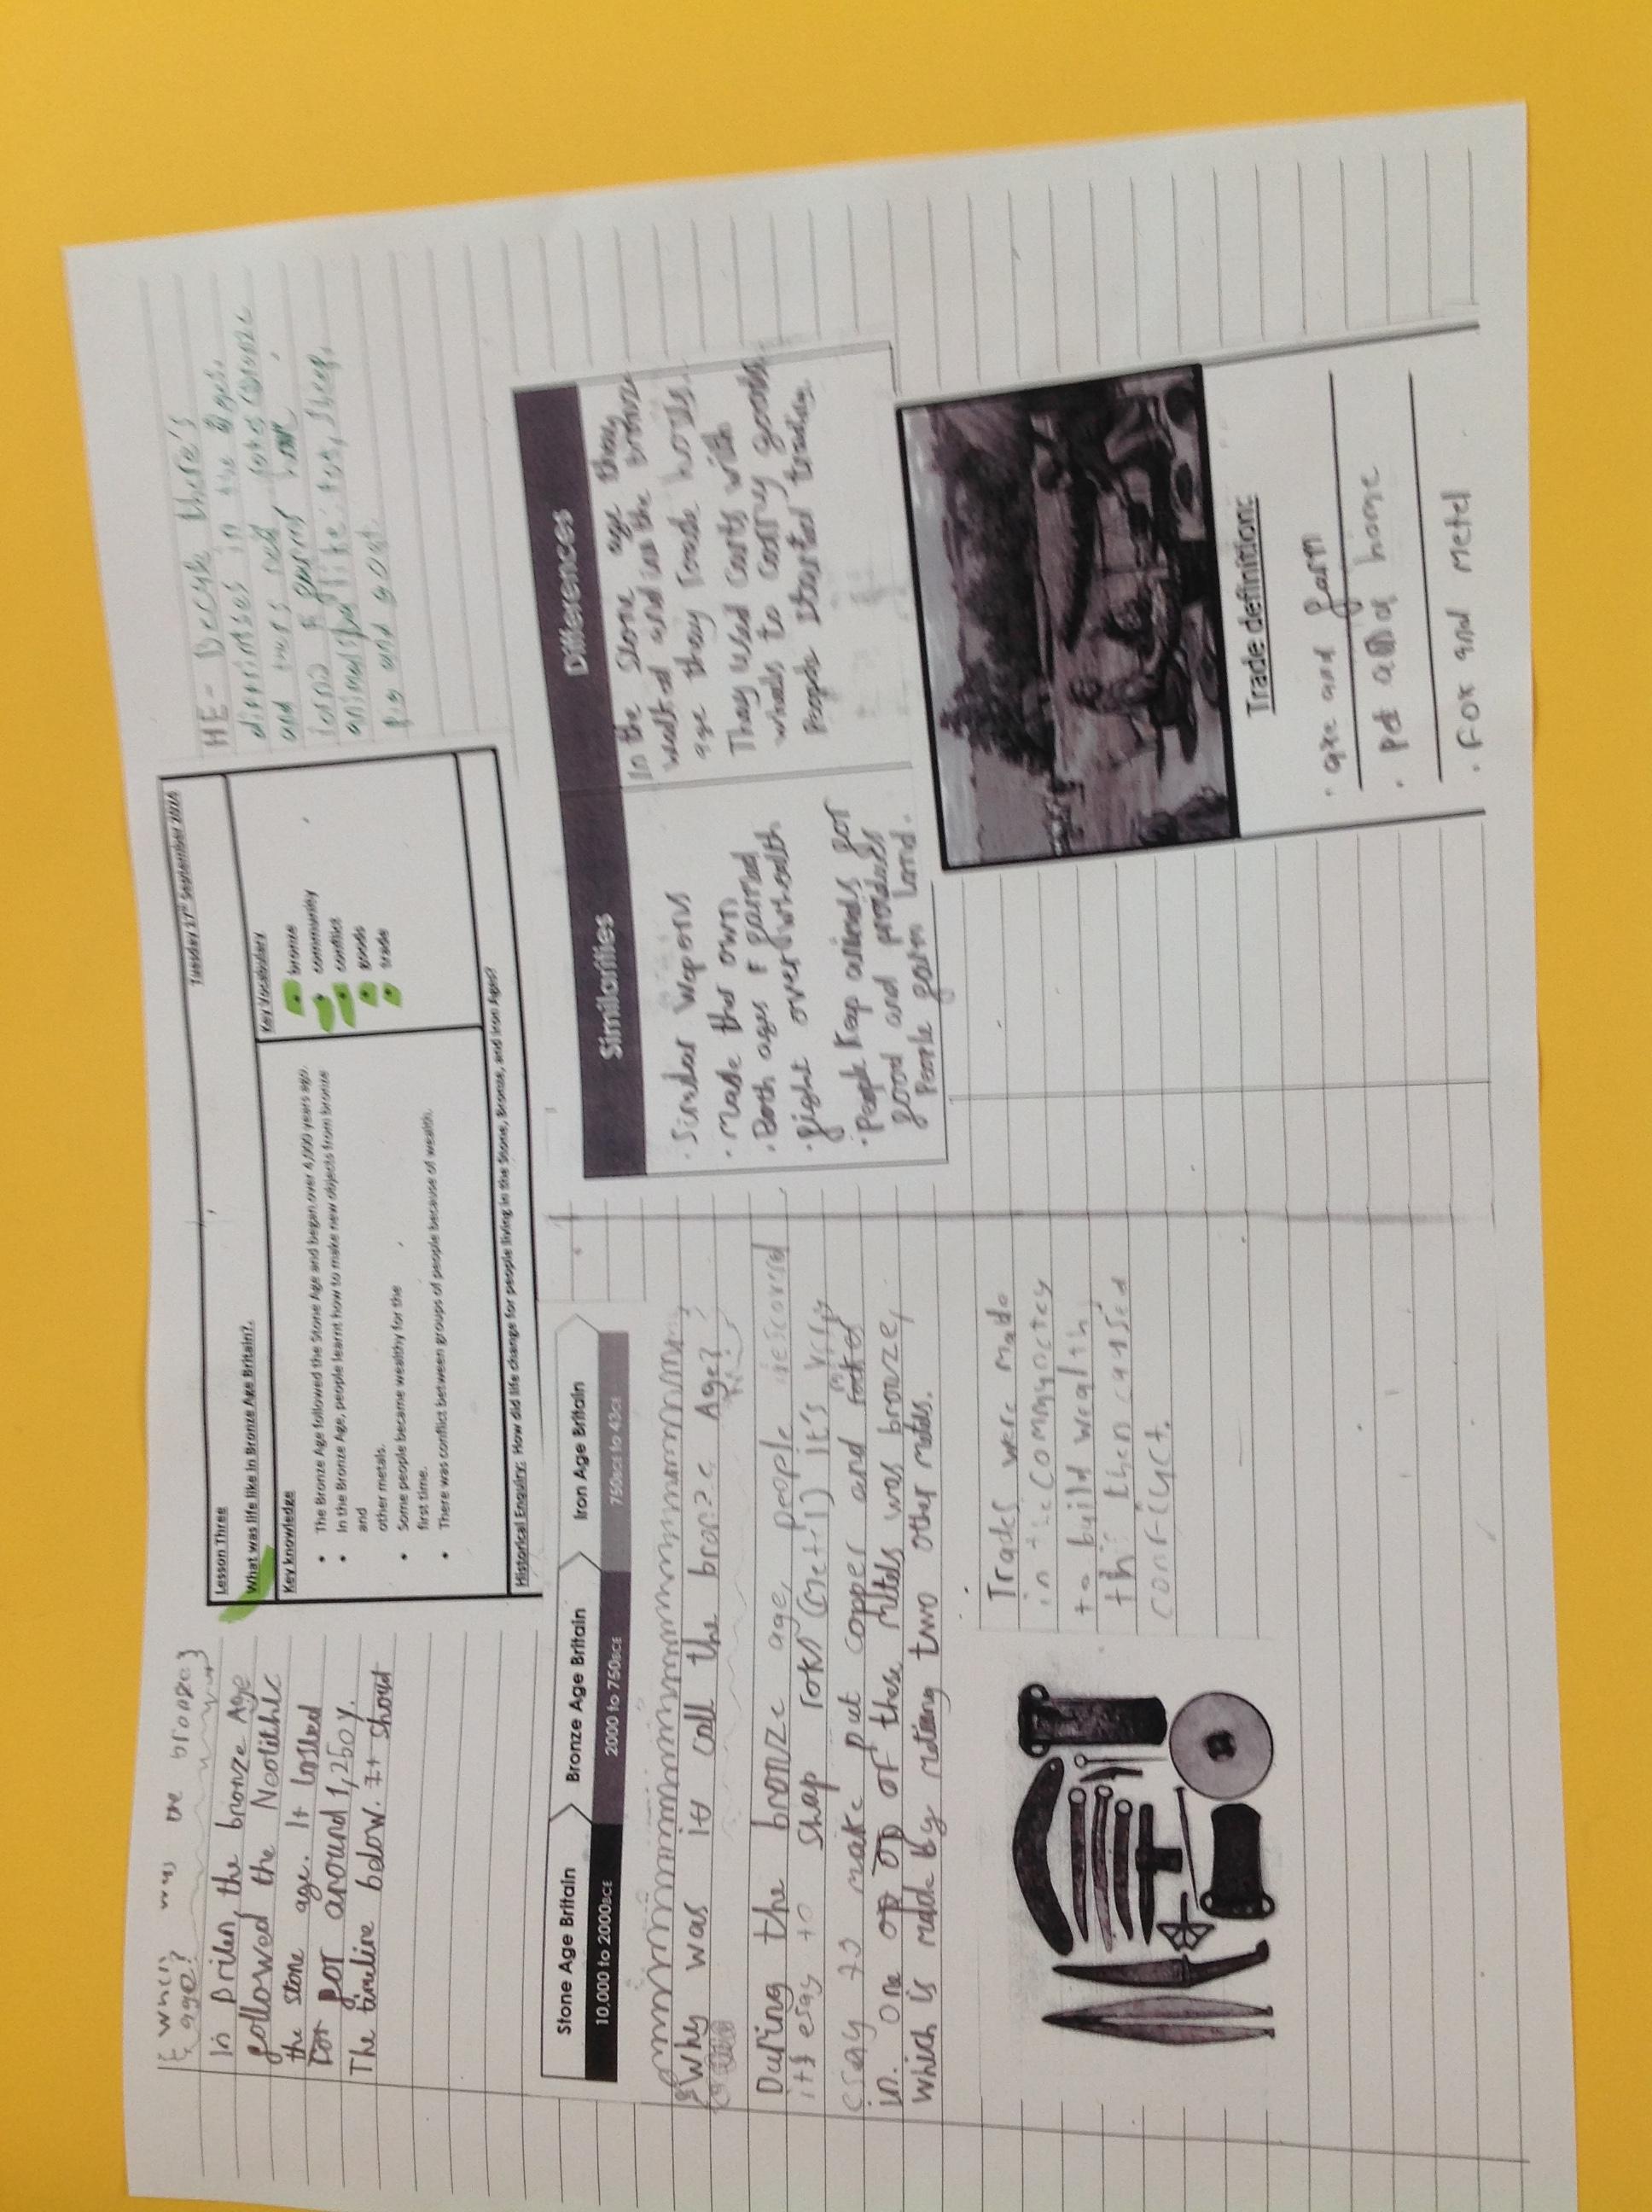 { when was the bronze}
{ age?
In briten, the bronze Age
followed the Neolithic
the stone age. It lasted
for around 1,250 y.
The timeline below. It shout
Lesson Three
Tuesday 17th September 2024
What was life like in Bronze Age Britain?.
Key knowledge
• The Bronze Age followed the Stone Age and began over 4,000 years ago.
• In the Bronze Age, people learnt how to make new objects from bronze
and
other metals.
• Some people became wealthy for the
first time.
• There was conflict between groups of people because of wealth.
Key Vocabulary
• bronze
• community
• conflict
• goods
• trade
Historical Enquiry: How did life change for people living in the Stone, Bronze, and Iron Ages?
HE- Becuh there's
in the Ages.
and
and
animals like: , sheep,
pig and goat.
Stone Age Britain
Bronze Age Britain
Iron Age Britain
10,000 to 2000BCE
2000 to 750BCE
750BCE to 43CE
Why was it call the bronze Age?
During the bronze age, people
it's esay to shap it's very
to make put copper and
in. One of these mtels was bronze,
which is made by melting two other metels.
Trades were made
in the commynctey
to build wealth
then caused
Similarities
• Similar wepons
• Made ther own
• Both ages farmed
• fight over whealth
• People Keep animals for
food and
People farm land.
Differences
In the Stone age they
walked and in the bronze
age they roade horses
They used carts with
wheels to carry goods
People started trading.
Trade definition:
• axe and farm
• pot and
• Fox and metel